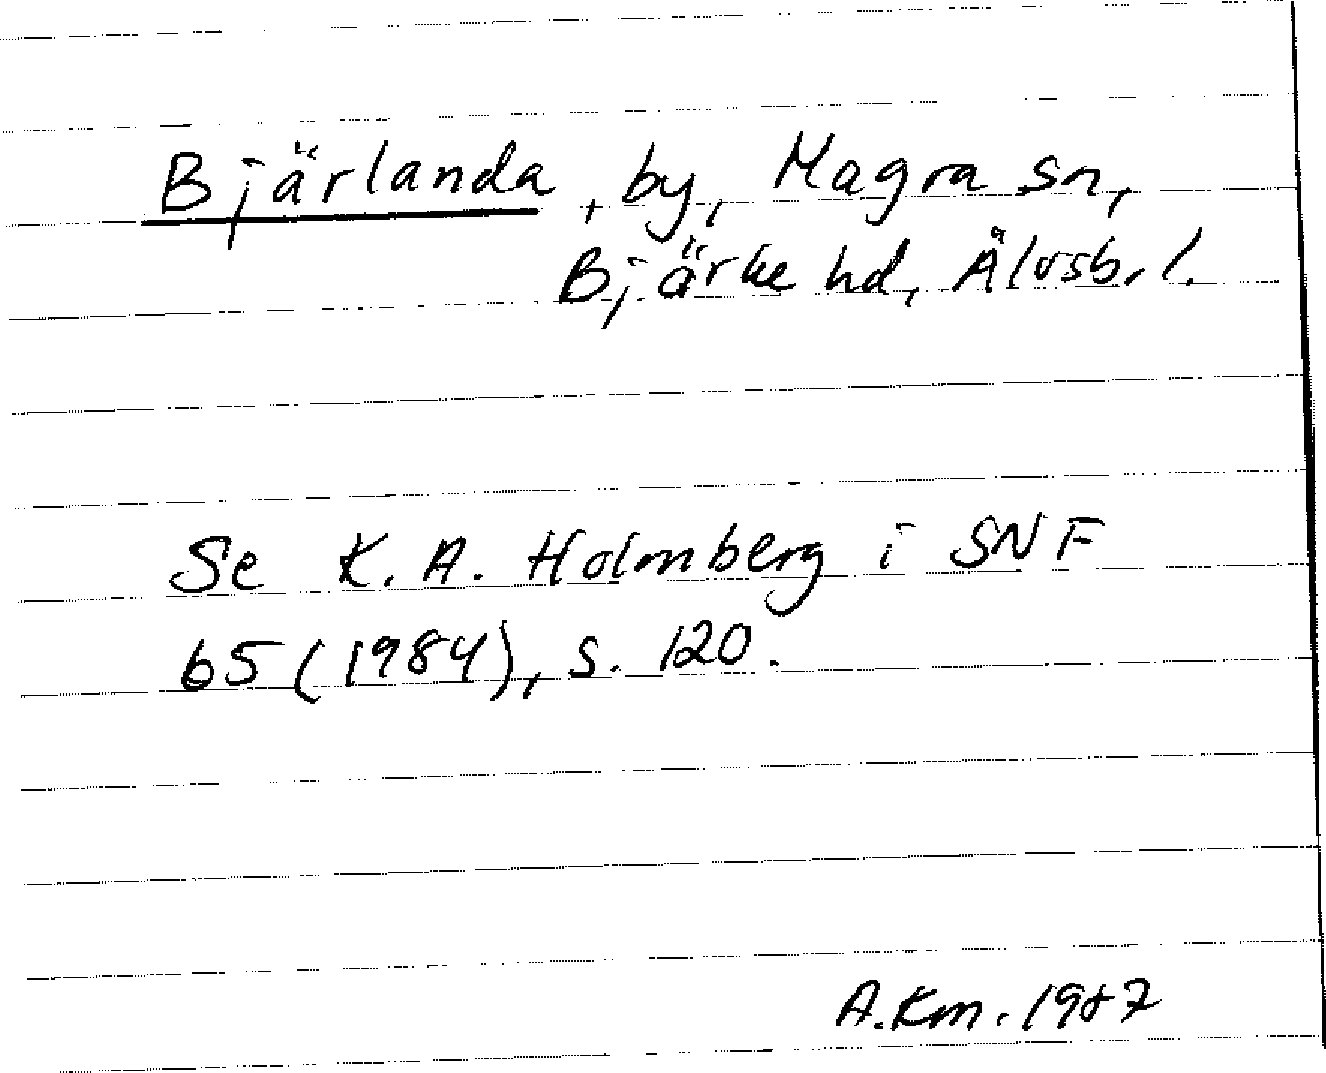 Bjärlanda, by, Magra sn,
Bjärke hd, Älvsb. l.
Se K. A. Holmberg i SNF
65 (1984), s. 120.
A.Km. 1987